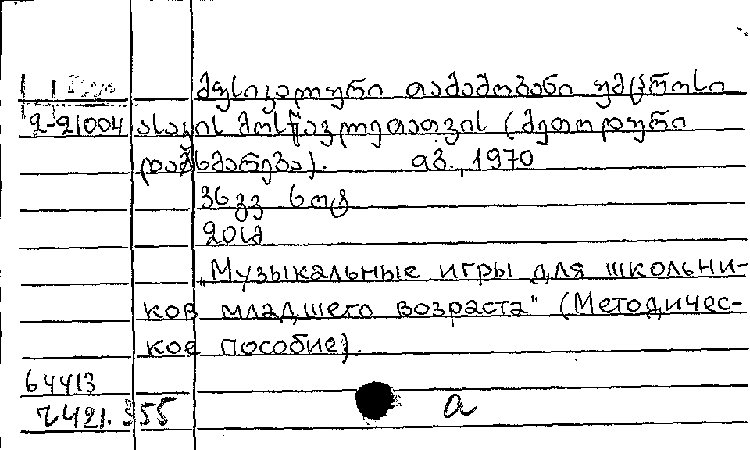 მუსიკალური თამაშობანი უმცროსი
2-21004 ასაკის მოსწავლეთათვის (მეთოდური
დამხმარება). თბ., 1970
36 გვ ნოტ
20სმ
„Музыкальные игры для школьни-
ков младшего возраста" (Методичес-
кое пособие).
64413
2421.355 а